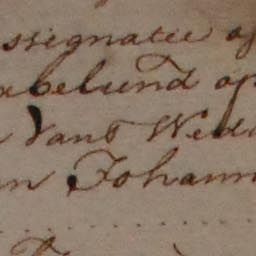 ssignatie op
abelund op
Vans Wed
n Johann